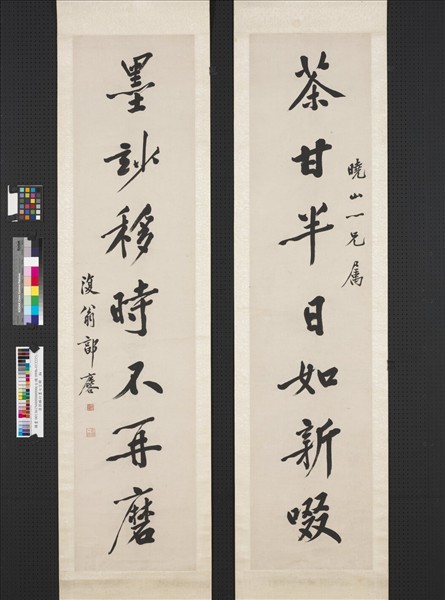 茶甘半日如新啜
曉山一兄屬
墨玅移時不再磨
復翁郭麐